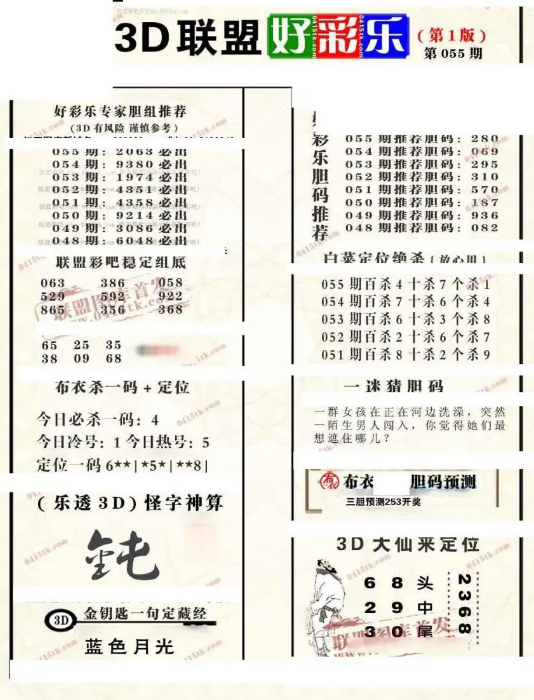 3D联盟好彩乐
(第1版)
第055期
好彩乐专家胆组推荐
(3D有风险 谨慎参考)
055期: 2063 必出
054期: 9380 必出
053期: 1974 必出
052期: 4351 必出
051期: 4358 必出
050期: 9214 必出
049期: 3086 必出
048期: 6048 必出
联盟彩吧稳定组底
063 386 058
529 592 922
865 356 368
65 25 35
38 09 68
布衣杀一码+定位
今日必杀一码: 4
今日冷号: 1 今日热号: 5
定位一码 6**|*5*|**8|
(乐透3D)怪字神算
3D
金钥匙一句定藏经
蓝色月光
彩乐胆码推荐
055期推荐胆码: 280
054期推荐胆码: 069
053期推荐胆码: 295
052期推荐胆码: 310
051期推荐胆码: 570
050期推荐胆码: 187
049期推荐胆码: 936
048期推荐胆码: 082
白菜定位绝杀(放心用)
055期百杀4十杀7个杀1
054期百杀7十杀6个杀4
053期百杀6十杀3个杀8
052期百杀2十杀6个杀7
051期百杀8十杀2个杀9
一迷猜胆码
一群女孩在正在河边洗澡，突然
一陌生男人闯入，你觉得她们最
想遮住哪儿?
布衣 胆码预测
三胆预测253开奖
3D大仙来定位
6 8 头
2 9 中
3 0 尾
2368